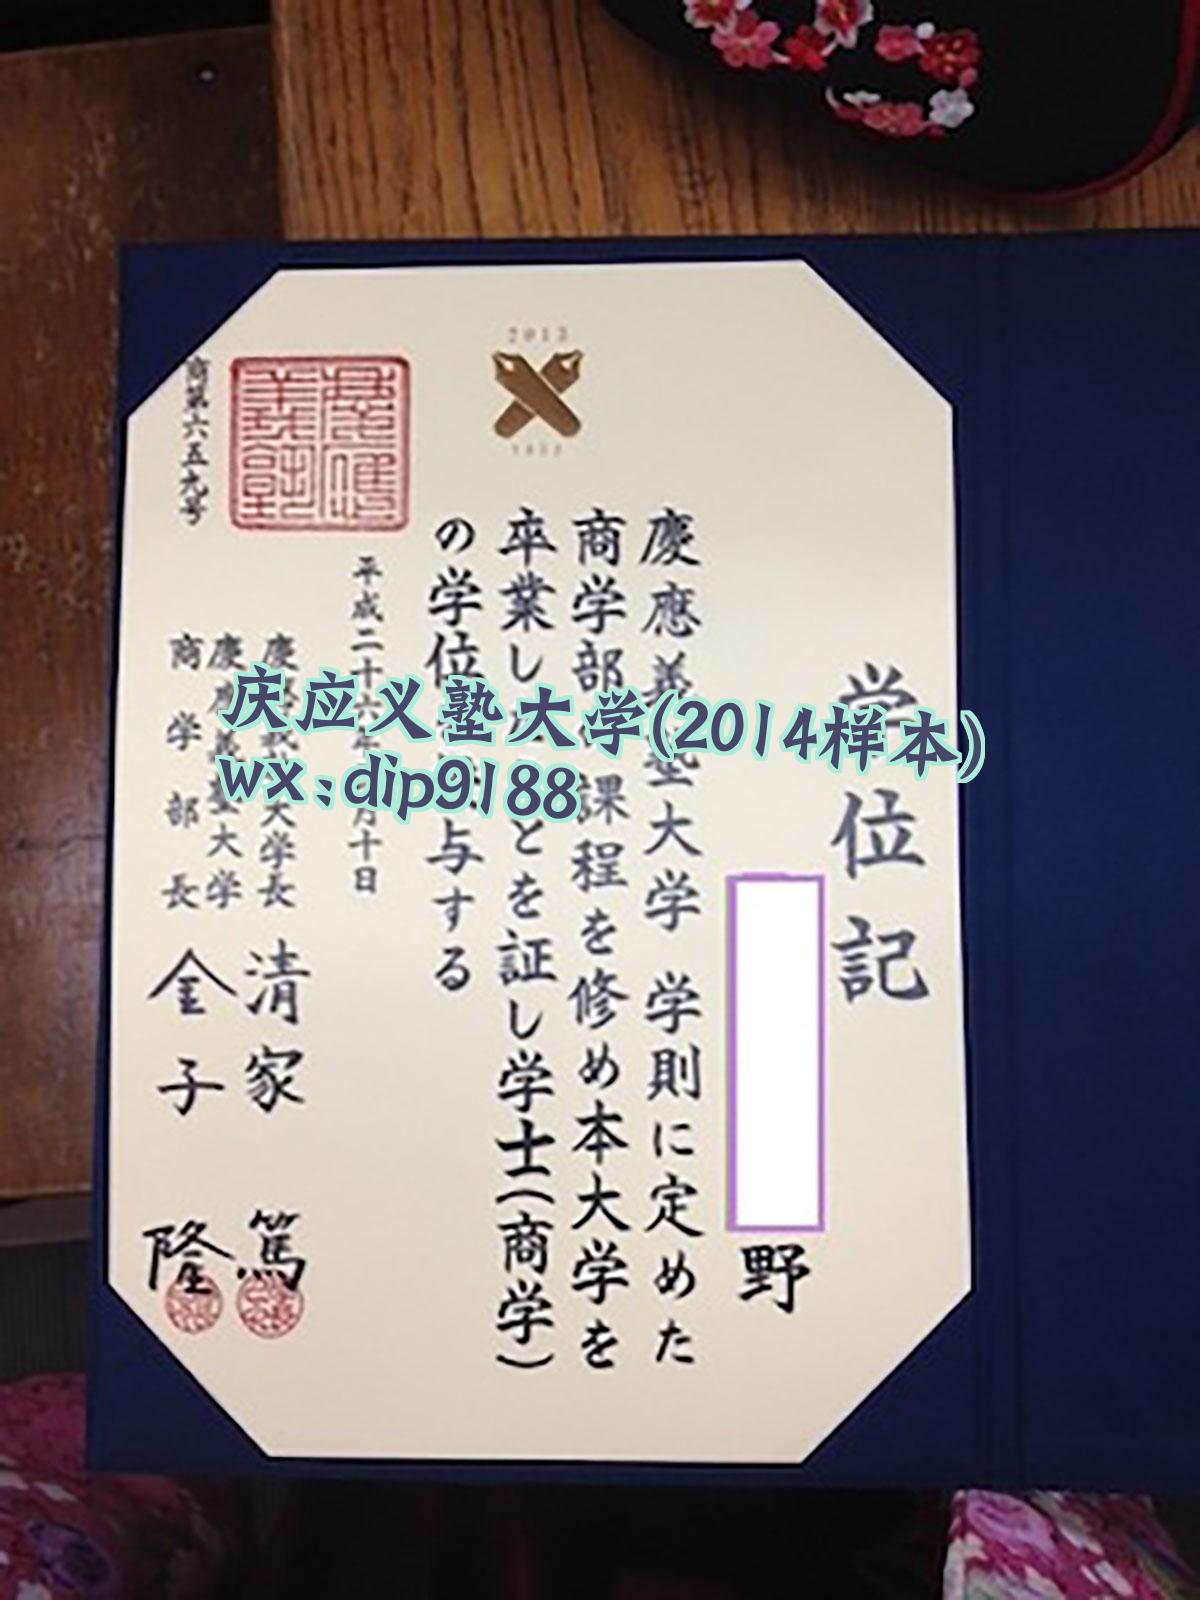 学位記
野
慶應義塾大学 学則に定めた
商学部 課程を修め本大学を
卒業し とを証し学士(商学)
の学位 与する
平成二十六年 月十日
慶 大学長 清家 篤
慶應義塾大学
商学部長 金子 隆
商第六五九号
2013
庆应义塾大学(2014样本)
wx:dip9188